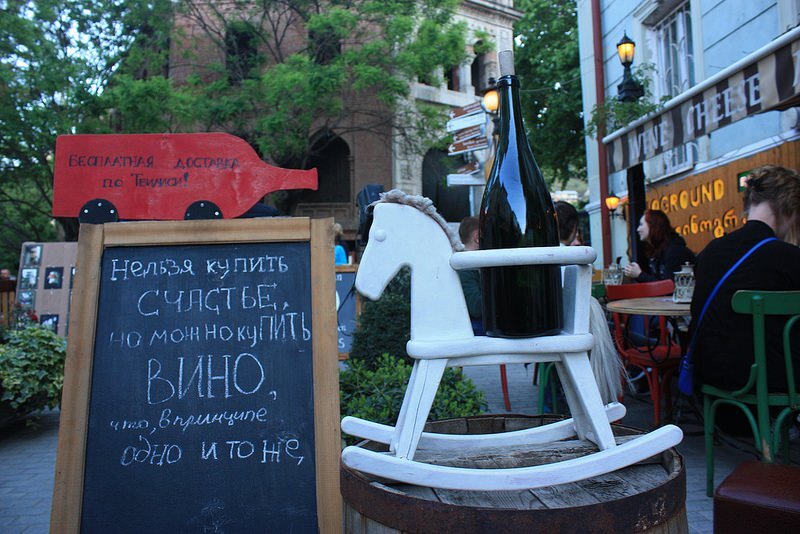 БЕСПЛАТНАЯ ДОСТАВКА
ПО ТБИЛИСИ!
Нельзя купить
СЧАСТЬЕ,
но можно куПИТЬ
ВИНО,
что, в принципе
одно и то же,
WINE CHEESE
GROUND